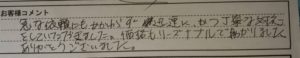 お客様コメント
急な依頼にもかかわらず 迅速に、かつ丁寧な対応
をしていただきました。価格もリーズナブルで助かりました。
ありがとうございました。